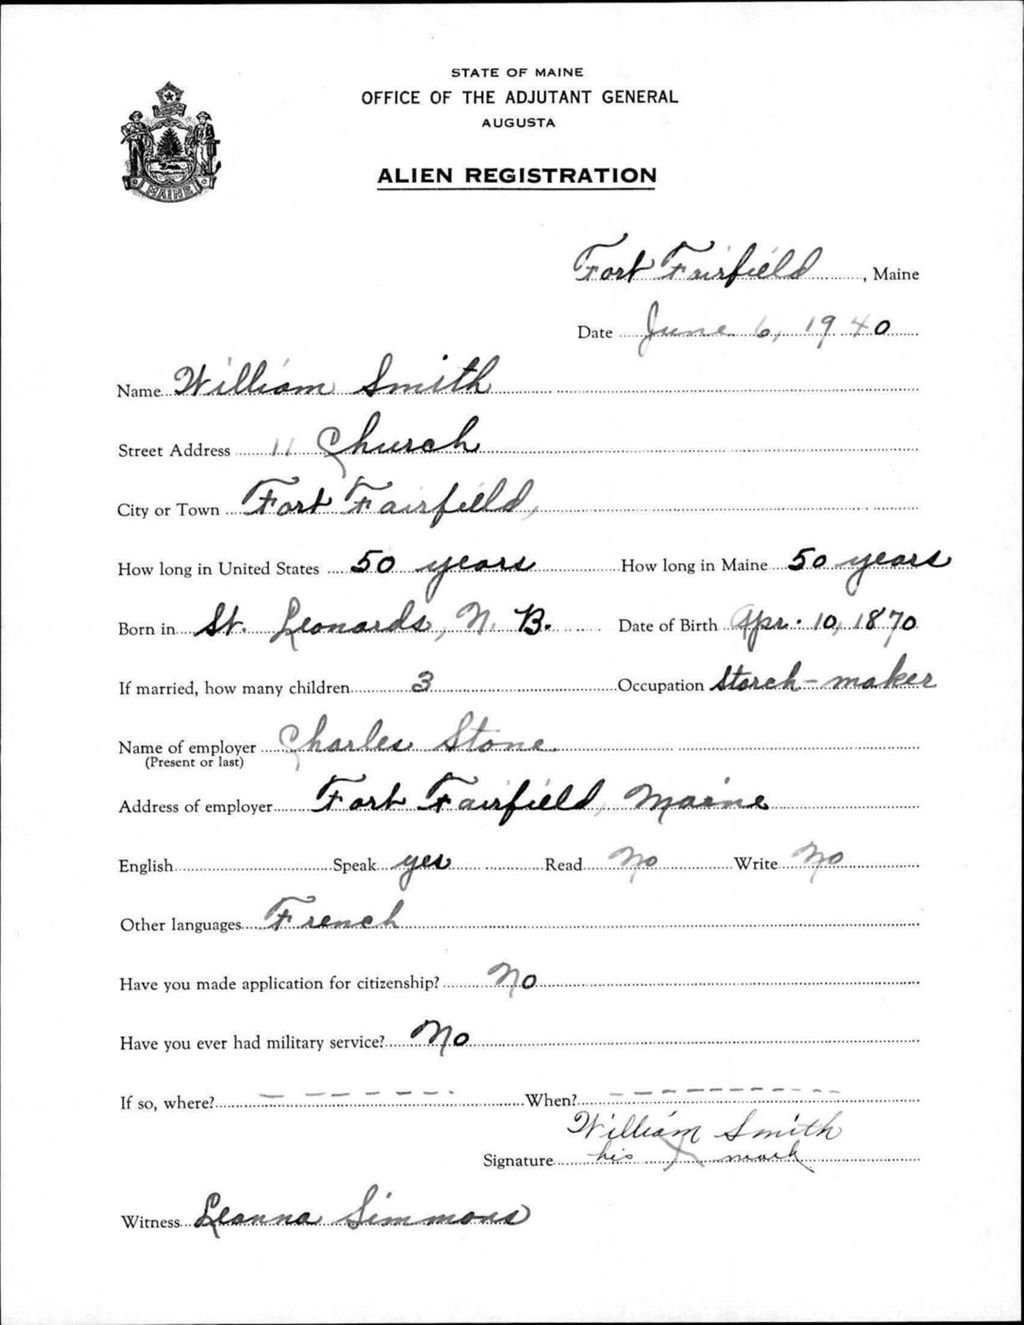 STATE OF MAINE
OFFICE OF THE ADJUTANT GENERAL
AUGUSTA
ALIEN REGISTRATION
MAINE
Fort Fairfield, Maine
Date June 6, 1940
Name William Smith
Street Address 11 Church
City or Town Fort Fairfield,
How long in United States 50 years How long in Maine 50 years
Born in St. Leonards, N. B. Date of Birth Apr. 10, 1870
If married, how many children 3 Occupation Starch-maker
Name of employer Charles Stone
(Present or last)
Address of employer Fort Fairfield, Maine
English Speak yes Read No Write No
Other languages French
Have you made application for citizenship? No
Have you ever had military service? No
If so, where? - - - - - - When? - - - - - - - - - -
William Smith
Signature his X mark
Witness Leanna Simmons